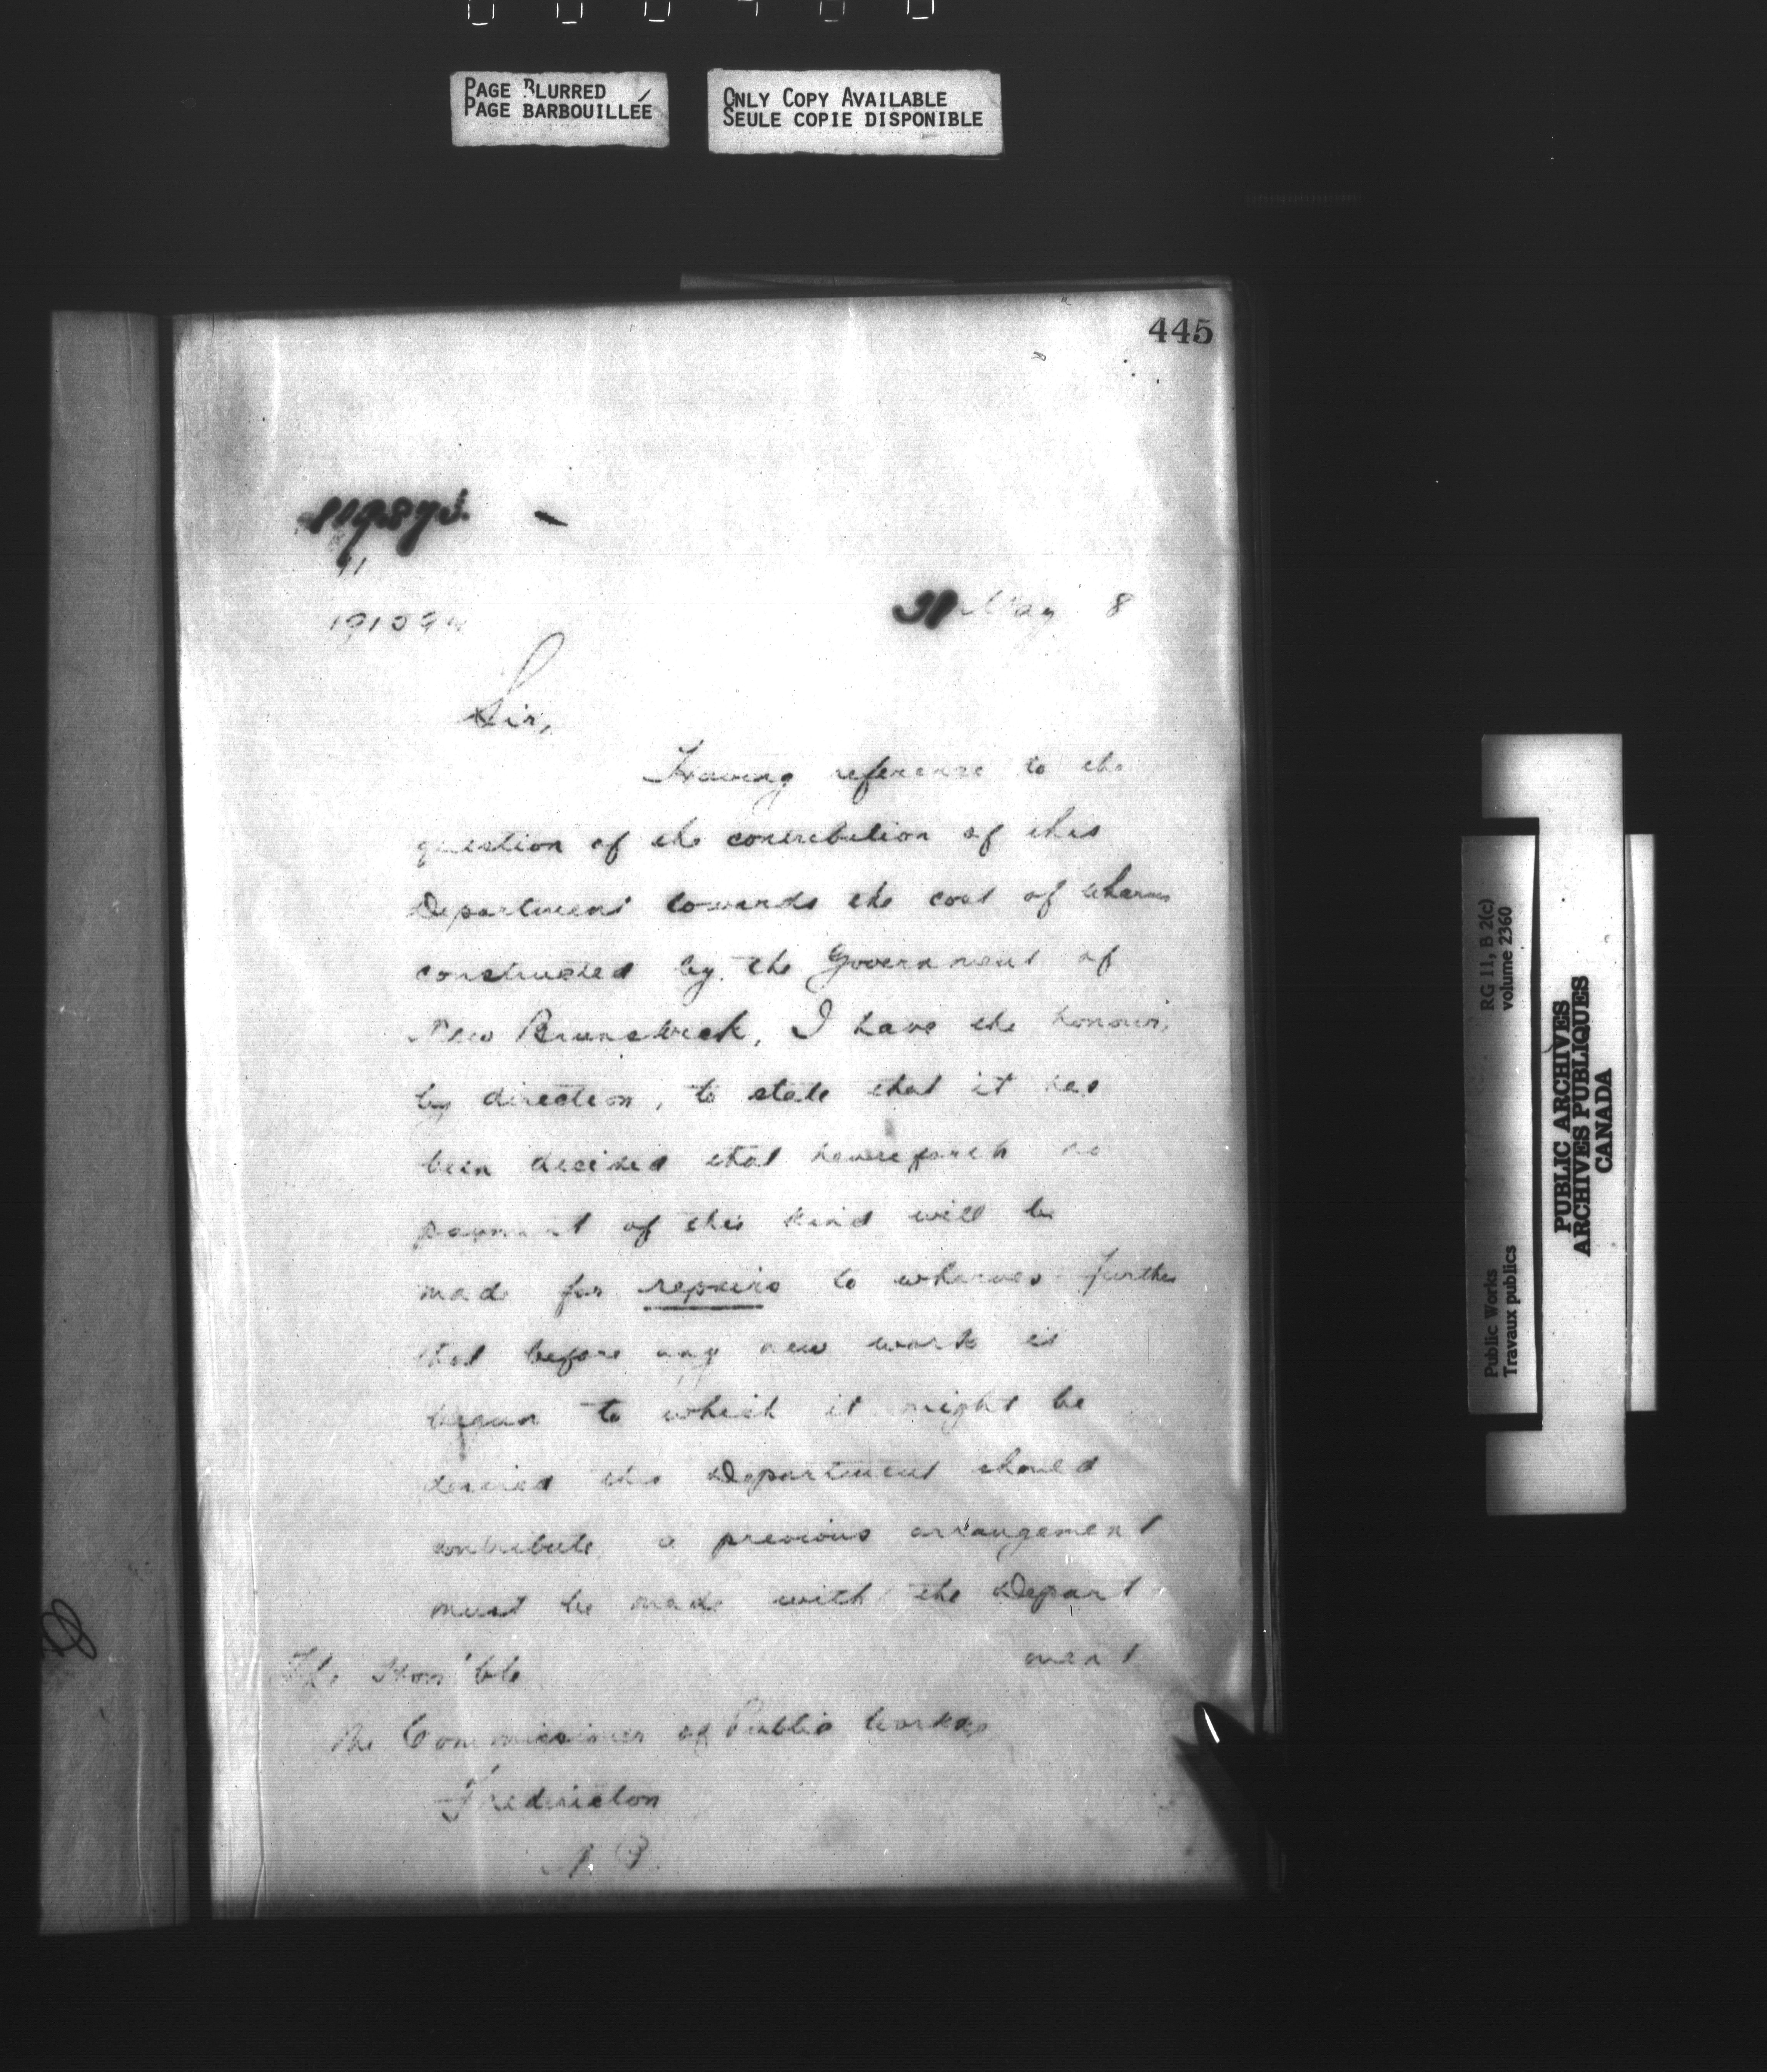 PAGE BLURRED
PAGE BARBOUILLÉE
ONLY COPY AVAILABLE
SEULE COPIE DISPONIBLE
445
11
May 8
Sir,
Having reference to the
question of the contribution of this
Department towards the cost of wharves
constructed by the Government of
New Brunswick, I have the honour,
by direction, to state that it has
been decided that henceforth no
payment of this kind will be
made for repairs to wharves further
that before any new work is
begun to which it might be
desired this Department should
contribute, a previous arrangement
must be made with the Depart
ment
The Hon'ble
The Commissioner of Public Works
Fredericton
N. B.
Public Works
Travaux publics
RG 11, B 2(c)
volume 2360
PUBLIC ARCHIVES
ARCHIVES PUBLIQUES
CANADA